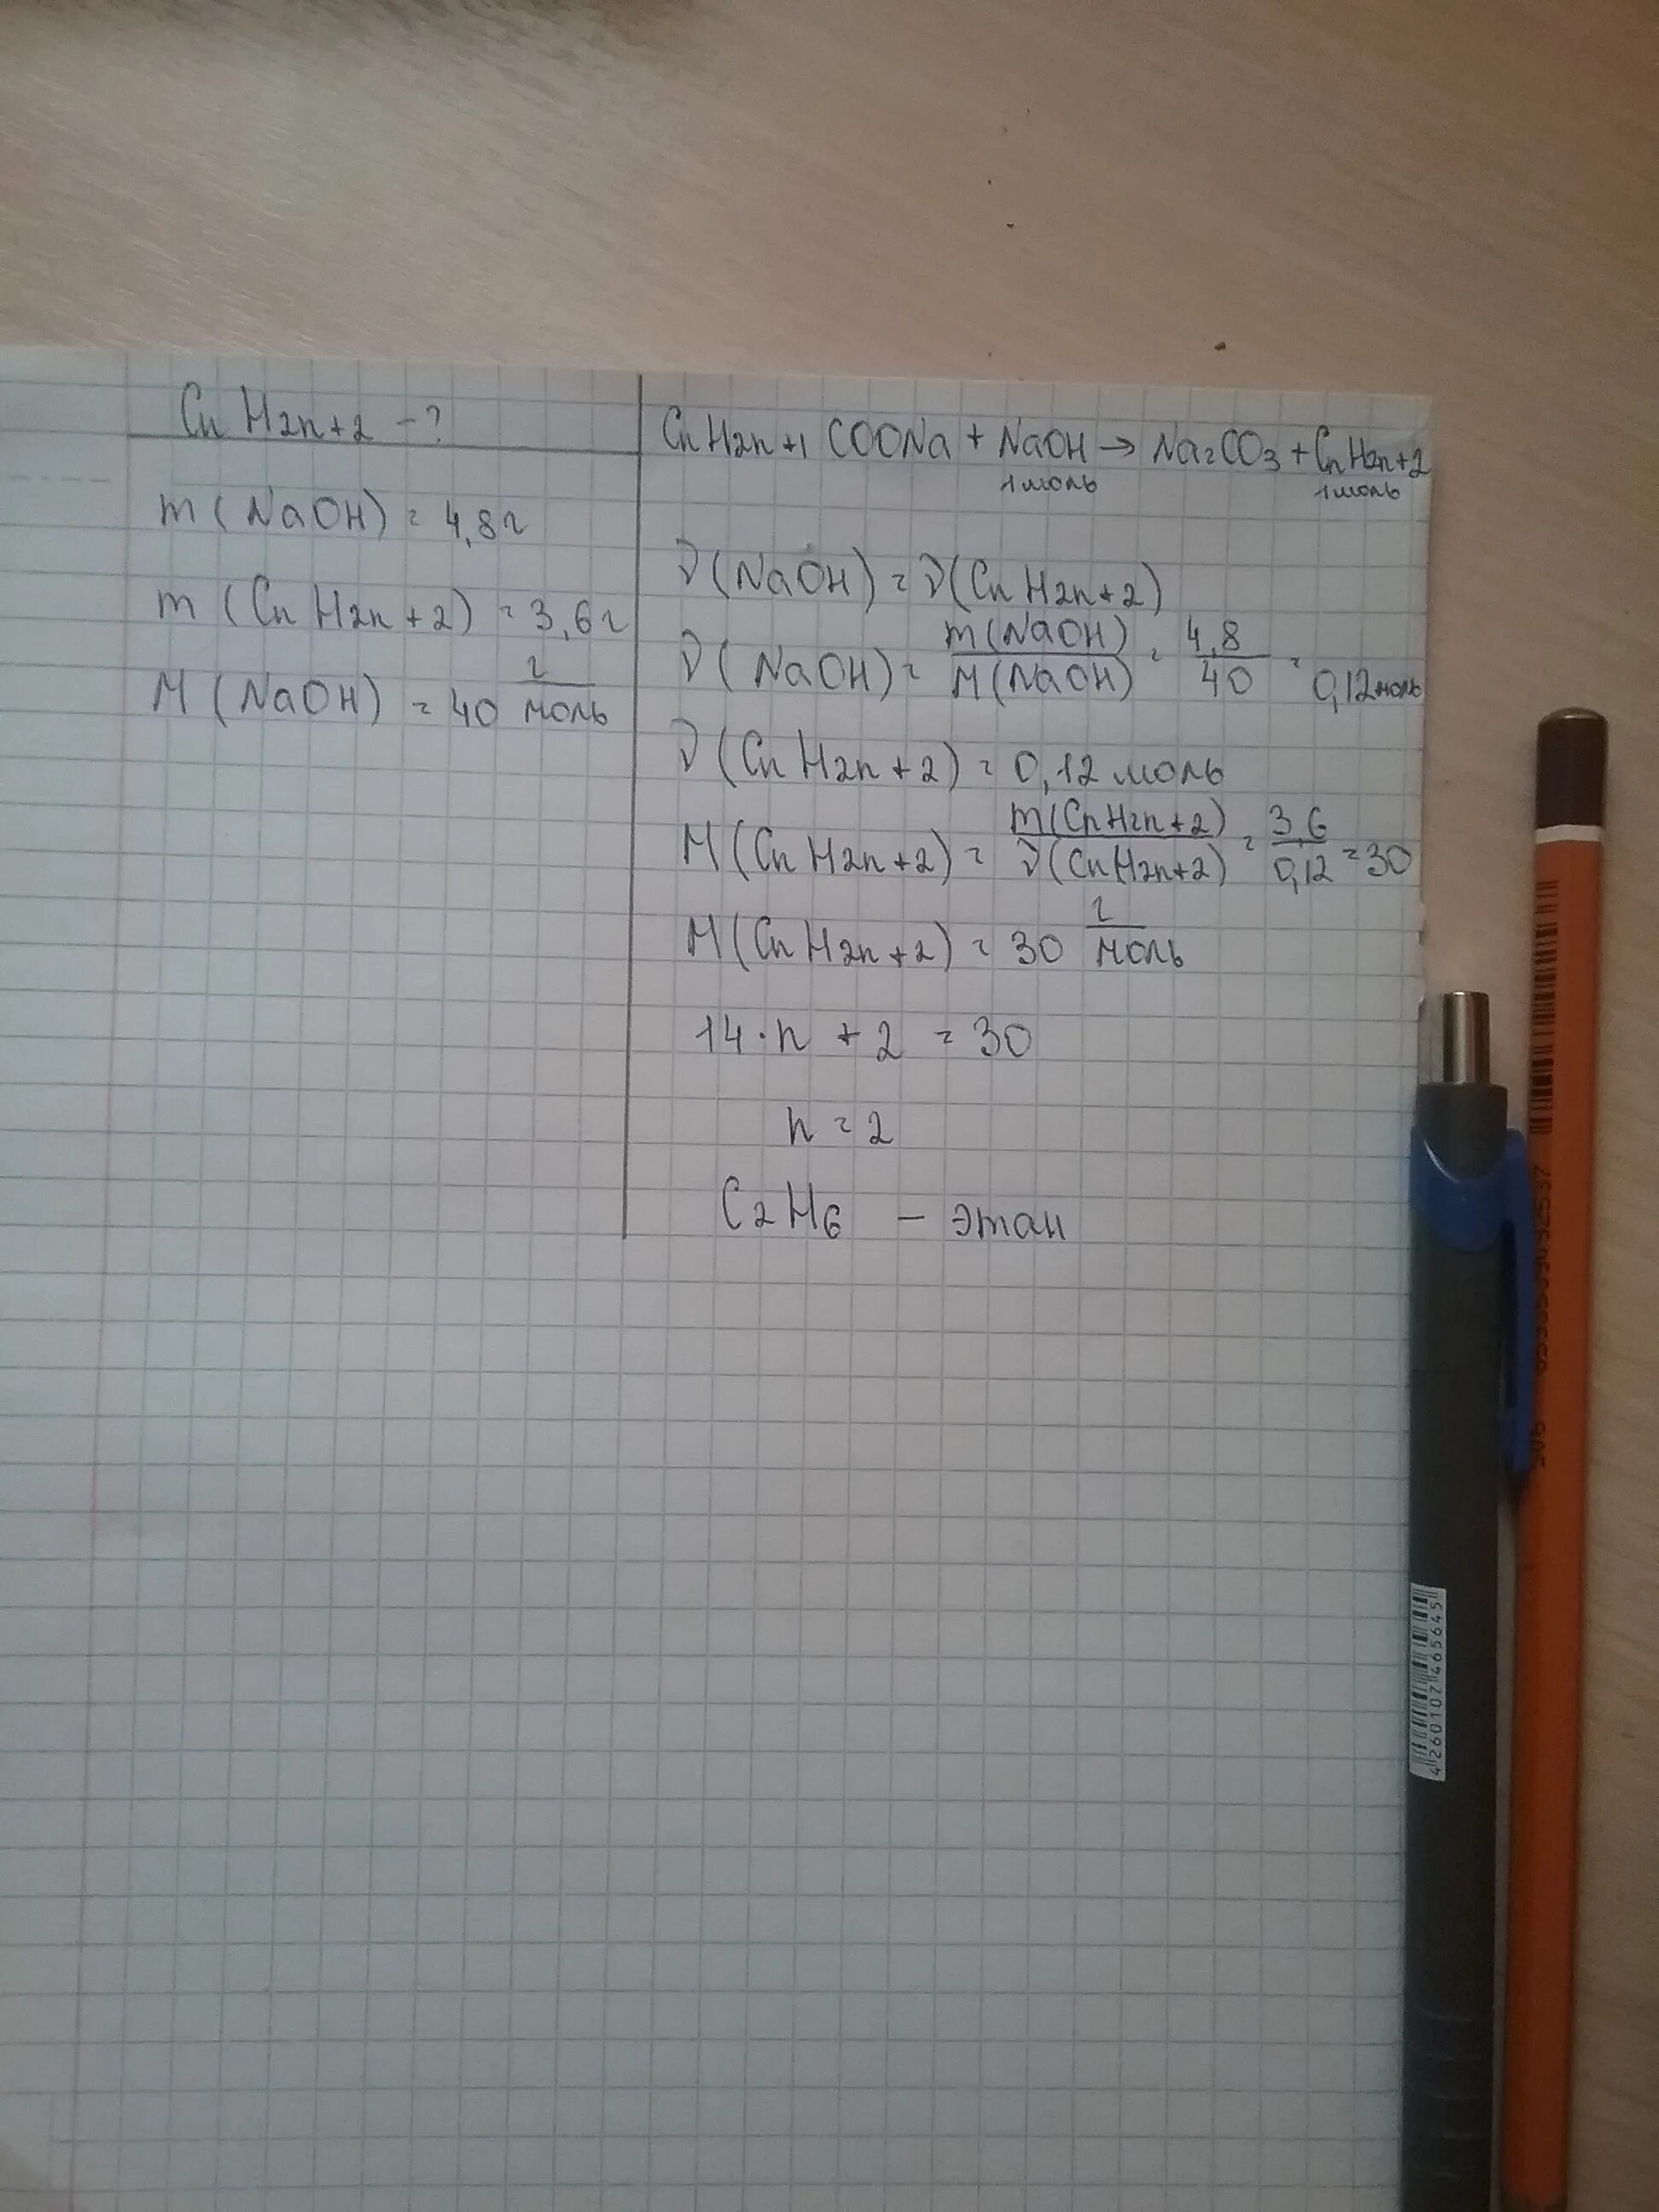 CnH2n+2 - ?
m(NaOH) = 4,8г
m(CnH2n+2) = 3,6г
M(NaOH) = 40 г/моль
CnH2n+1COONa + NaOH → Na2CO3 + CnH2n+2
1моль 1моль
ν(NaOH) = ν(CnH2n+2)
ν(NaOH) = m(NaOH)/M(NaOH) = 4,8/40 = 0,12моль
ν(CnH2n+2) = 0,12 моль
M(CnH2n+2) = m(CnH2n+2)/ν(CnH2n+2) = 3,6/0,12 = 30
M(CnH2n+2) = 30 г/моль
14·n + 2 = 30
n = 2
C2H6 - этан
4260107465645